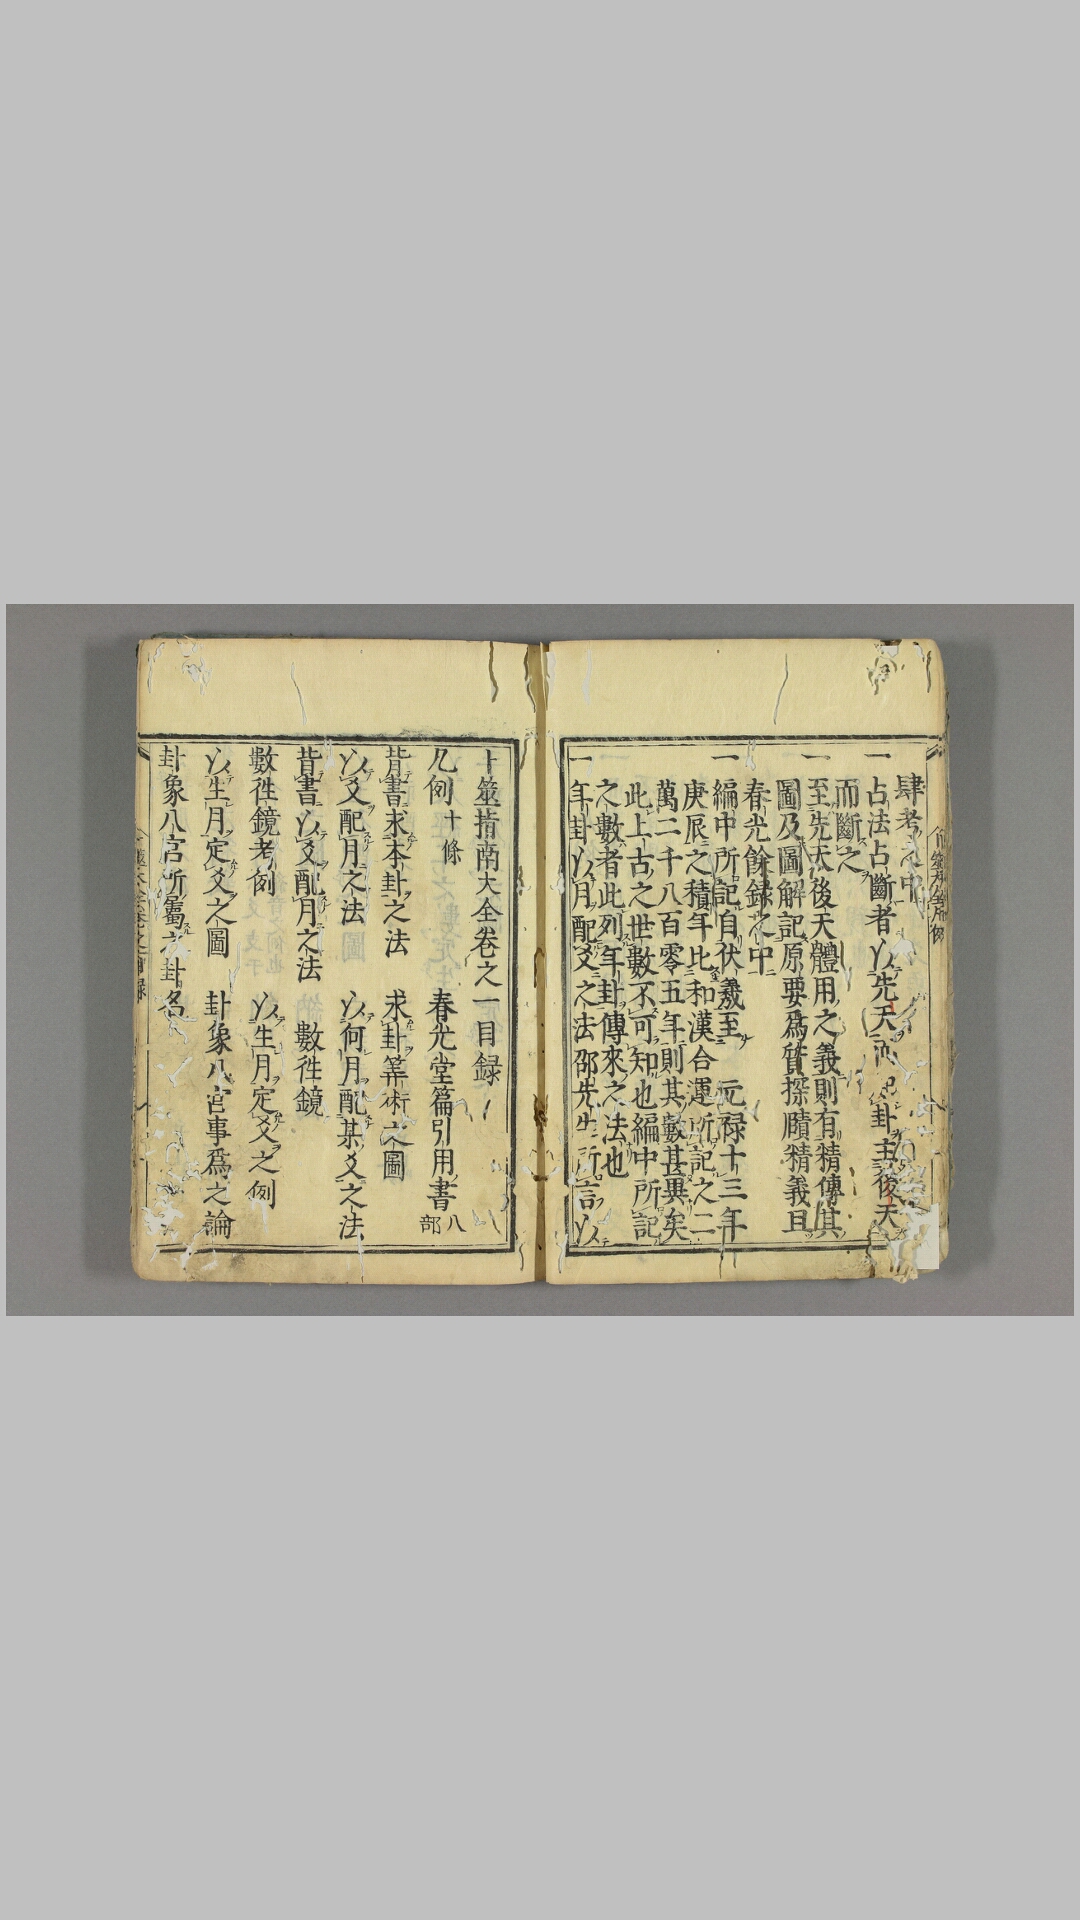 肆考之中
一占法占斷者以先天而起卦主後天
而斷之
一至先天後天體用之義則有精傳其
圖及圖解記原要爲質探賾精義且
春光餘録之中
一編中所記自伏羲至 元禄十三年
庚辰之積年比和漢合運所記之二
萬二千八百零五年則其數甚異矣
此上古之世數不可知也編中所記
之數者此列年卦傳來之法也
一年卦以月配爻之法邵先生所言以
卜筮指南大全卷之一目録
凡例十條 春光堂篇引用書八部
昔書求本卦之法 求卦筭術之圖
以爻配月之法 以何月配某爻之法
昔書以爻配月之法 數徃鏡
數徃鏡考例 以生月定爻之例
以生月定爻之圖 卦象八宮事爲之論
卦象八宮所屬六卦名